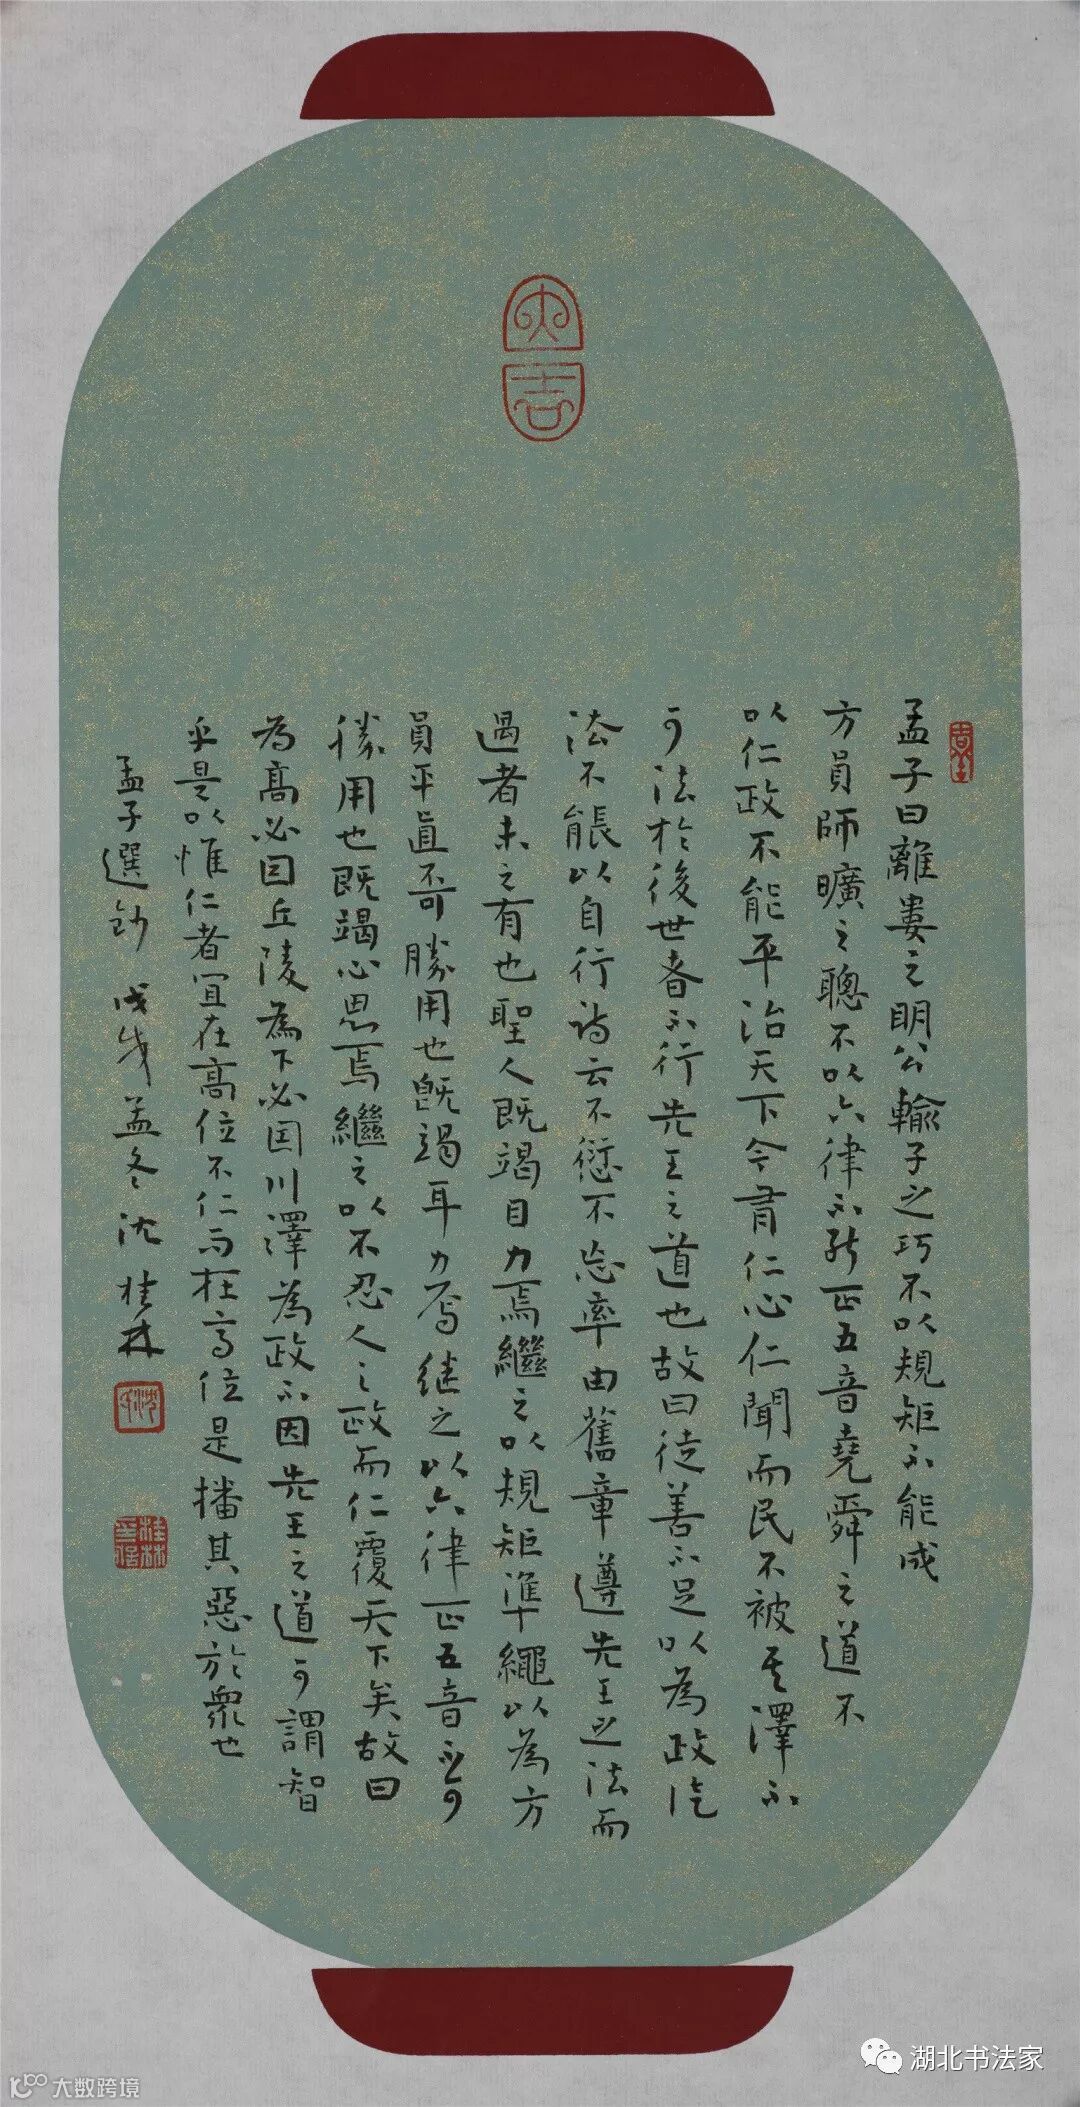 大吉
孟子曰離婁之明公輸子之巧不以規矩不能成
方員師曠之聰不以六律不能正五音堯舜之道不
以仁政不能平治天下今有仁心仁聞而民不被其澤不
可法於後世者不行先王之道也故曰徒善不足以為政徒
法不能以自行詩云不愆不忘率由舊章遵先王之法而
過者未之有也聖人既竭目力焉繼之以規矩準繩以為方
員平直不可勝用也既竭耳力焉继之以六律正五音不可
勝用也既竭心思焉繼之以不忍人之政而仁覆天下矣故曰
為高必因丘陵為下必因川澤為政不因先王之道可謂智
乎是以惟仁者宜在高位不仁而在高位是播其惡於眾也
孟子選鈔 戊戌孟冬 沈桂林
湖北书法家
大数跨境